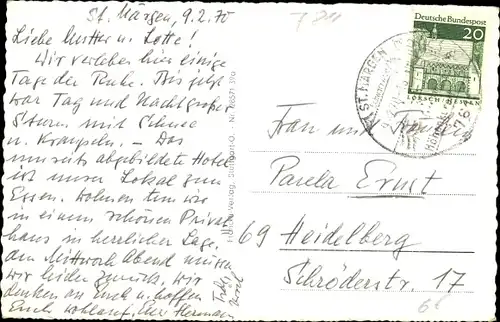 St. Märgen, 9.2.70
Liebe Mutter u. Lotte!
Wir verleben hier einige
Tage der Ruhe. Bis jetzt
war Tag und Nacht großer
Sturm mit Schnee
u. Das
umseits abgebildete Hotel
ist unser Lokal zum
Essen. wohnen tun wir
in einem schönen Privat
haus in herrlicher Lage.
den Mittwoch Abend müssen
wir leider zurück. Wir
denken an Euch u. hoffen
Euch wohlauf, Hermann
Deutsche Bundespost
20
LORSCH/HESSEN
ST. MÄRGEN
Frau und
Paula Ernst
69 Heidelberg
Schröderstr. 17